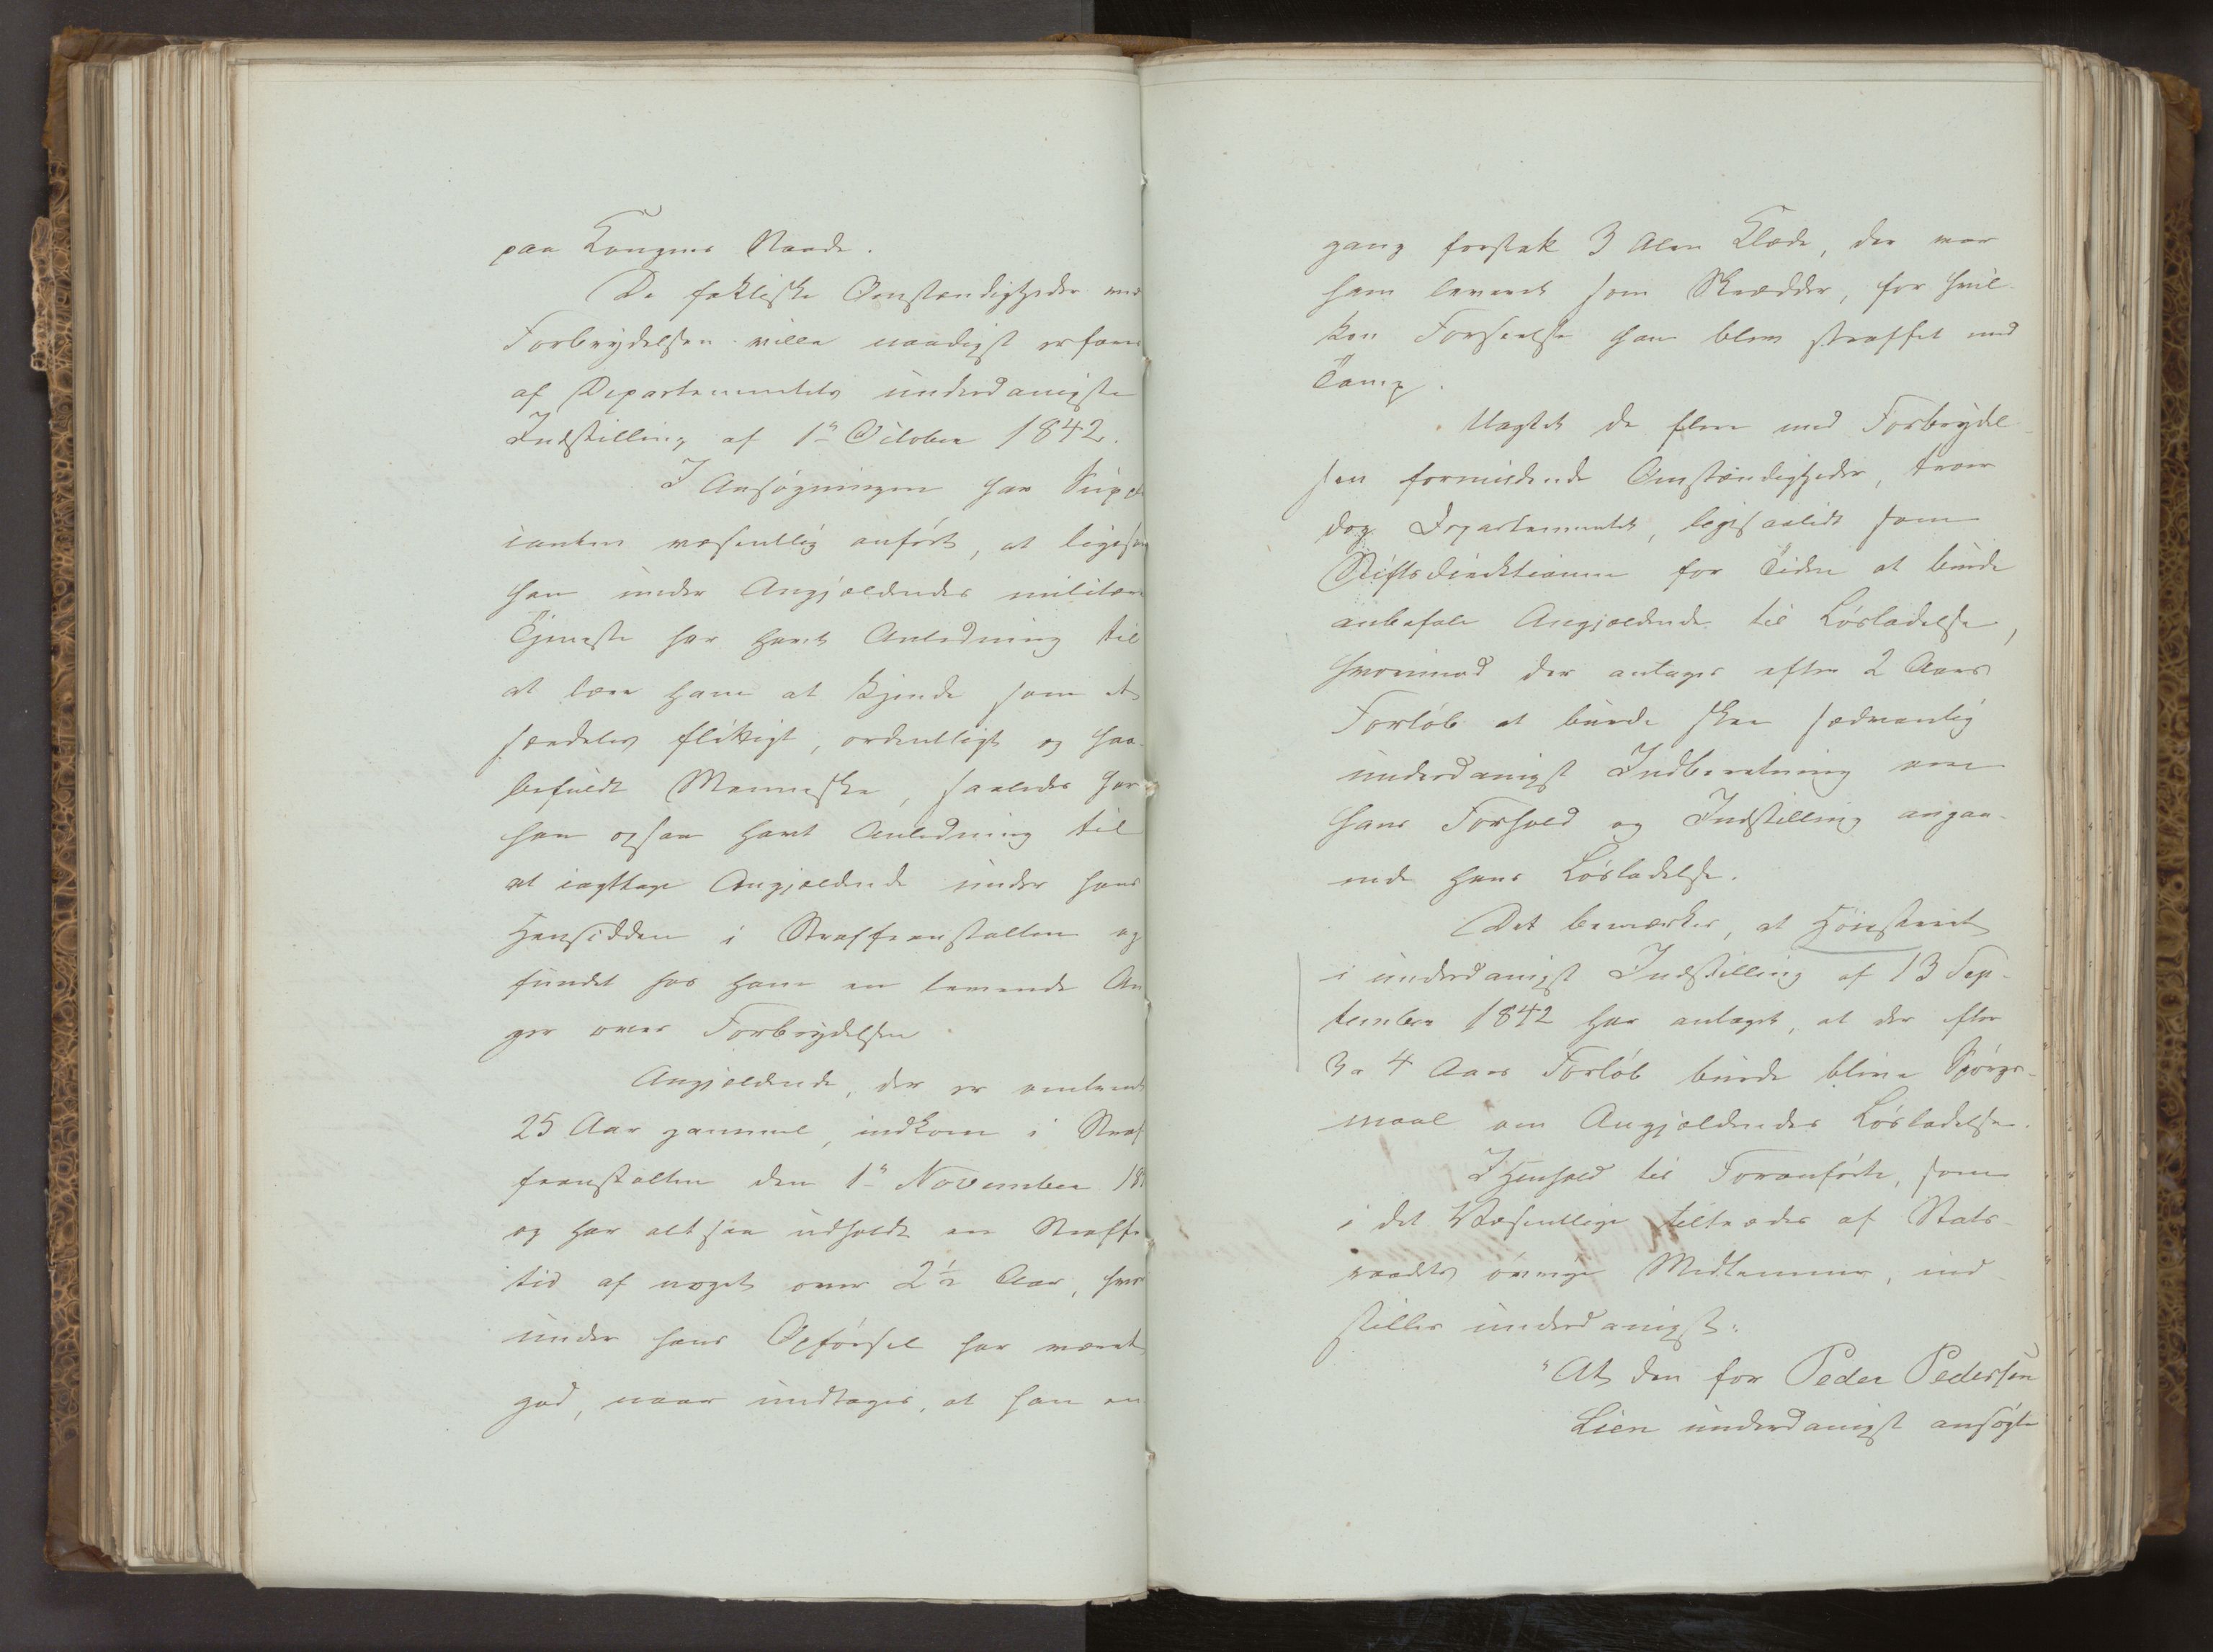 paa Kongens Naade.
De faktiske Omstændigheder ved
Forbrydelsen ville naadigst erfares
af Departementets underdanigste
Indstilling af 1ste October 1842.
I Ansøgningen har Suppli
canten væsentlig anført, at ligesom
han under Angjældendes militære
Tjeneste har havt Anledning til
at lære ham at kjende som et
særdeles flittigt, ordentligt og haa-
befuldt Menneske, saaledes har
han ogsaa havt Anledning til
at iagttage Angjældende under hans
Hensidden i Straffeanstalten og
fundet hos ham en levende An
ger over Forbrydelsen
Angjældende, der er omtrent
25 Aar gammel, indkom i Straf
feanstalten den 1ste November 18
og har altsaa udholdt en Straffe
tid af noget over 2½ Aar, hvor
under hans Opførsel har været
god, naar undtages, at han en
gang forstak 3 Alen Klæde, der var
ham leveret som Skrædder, for hvil-
ken Forseelse han blev straffet med
Tamp.
Uagtet de flere ved Forbrydel-
sen formildende Omstændigheder, troer
dog Departementet, ligesaalidt som
Stiftsdirektionen for Tiden at burde
anbefale Angjældende til Løsladelse,
hvorimod der antages efter 2 Aars
Forløb at burde skee sædvanlig
underdanigst Indberetning om
hans Forhold og Indstilling angaa-
ende hans Løsladelse.
Det bemærkes, at Høiesteret
i underdanigst Indstilling af 13 Sep-
tember 1842 har antaget, at der efter
3 a 4 Aars Forløb burde blive Spørgs-
maal om Angjældendes Løsladelse.
I Henhold til Foranførte, som
i det Væsentlige tiltrædes af Stats-
raadets øvrige Medlemmer, ind-
stilles underdanigst:
"At den for Peder Pedersen
Lien underdanigst ansøgte